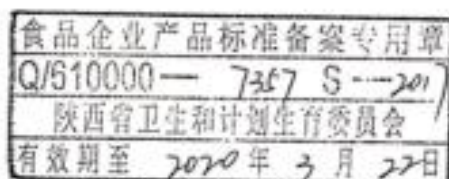 食品企业产品标准备案专用章
Q/610000— 7357 S—2017
陕西省卫生和计划生育委员会
有效期至 2020年3月22日